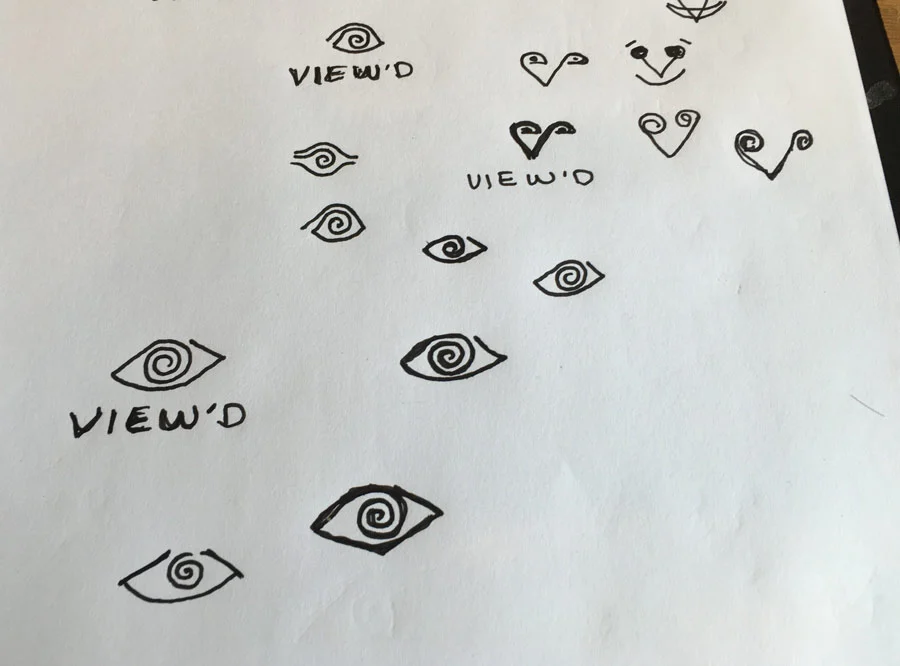 VIEW'D
VIEW'D
VIEW'D